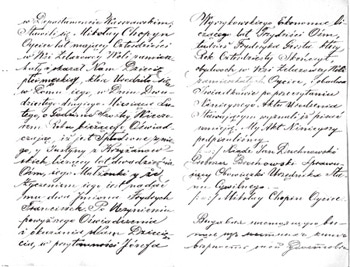 w Departamencie Warszawskim,
Stawił się Mikołay Chopyn
Oyciec lat maiący Czterdzieści
w Wsi Żelazowey Woli zamiesz
okazał Nam Dziecie
płci męskiey, które Urodziło się
w Domu iego, w Dniu Dwu-
dziestym drugim Miesiąca Lute-
go, o Godzinie Szóstey Wieczo-
rem Roku bieżącego Oświad-
czaiąc iż iest Spłodzone z nie-
go, y Justyny z Krzyżanow-
skich, liczącey lat dwadzieścia
Ośm, iego Małżonki y że
życzeniem iego iest nadać
mu dwa Imiona Fryderyk
Franciszek. Po Uczynieniu
powyższego Oświadczenia
i okazaniu nam Dziecię-
cia, w przytomności Józefa
Wyrzykowskiego Ekonoma li-
czącego lat Trzydzieści Ośm,
tudzież Fryderyka Geszta, który
Rok Czterdziesty Skończył,
obydwóch w Wsi Żelazowey Woli
zamieszkałych. Oyciec i obydwa
Świadkowie po przeczytaniu
Ninieyszego Aktu Urodzenia
Stawaiącym wyznali iż pisać
umieią. My Akt Ninieyszy
podpisaliśmy.
Xiądz Jan Duchnowski
Proboszcz Brochowski Sprawu-
iący Obowiązki Urzędnika Sta-
nu Cywilnego.
Mikołay Chopin Oyciec.